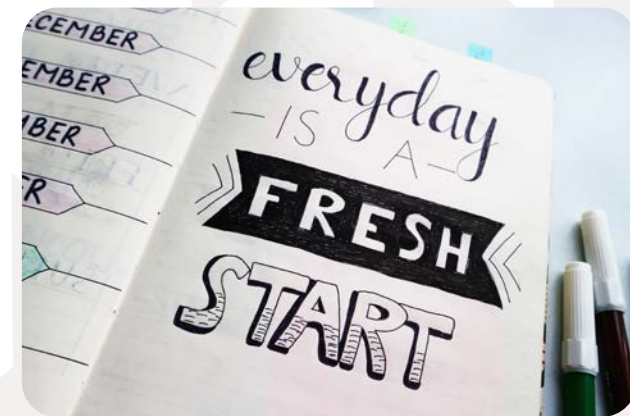 ECEMBER
EMBER
BER
R
everyday
— IS A —
FRESH
START